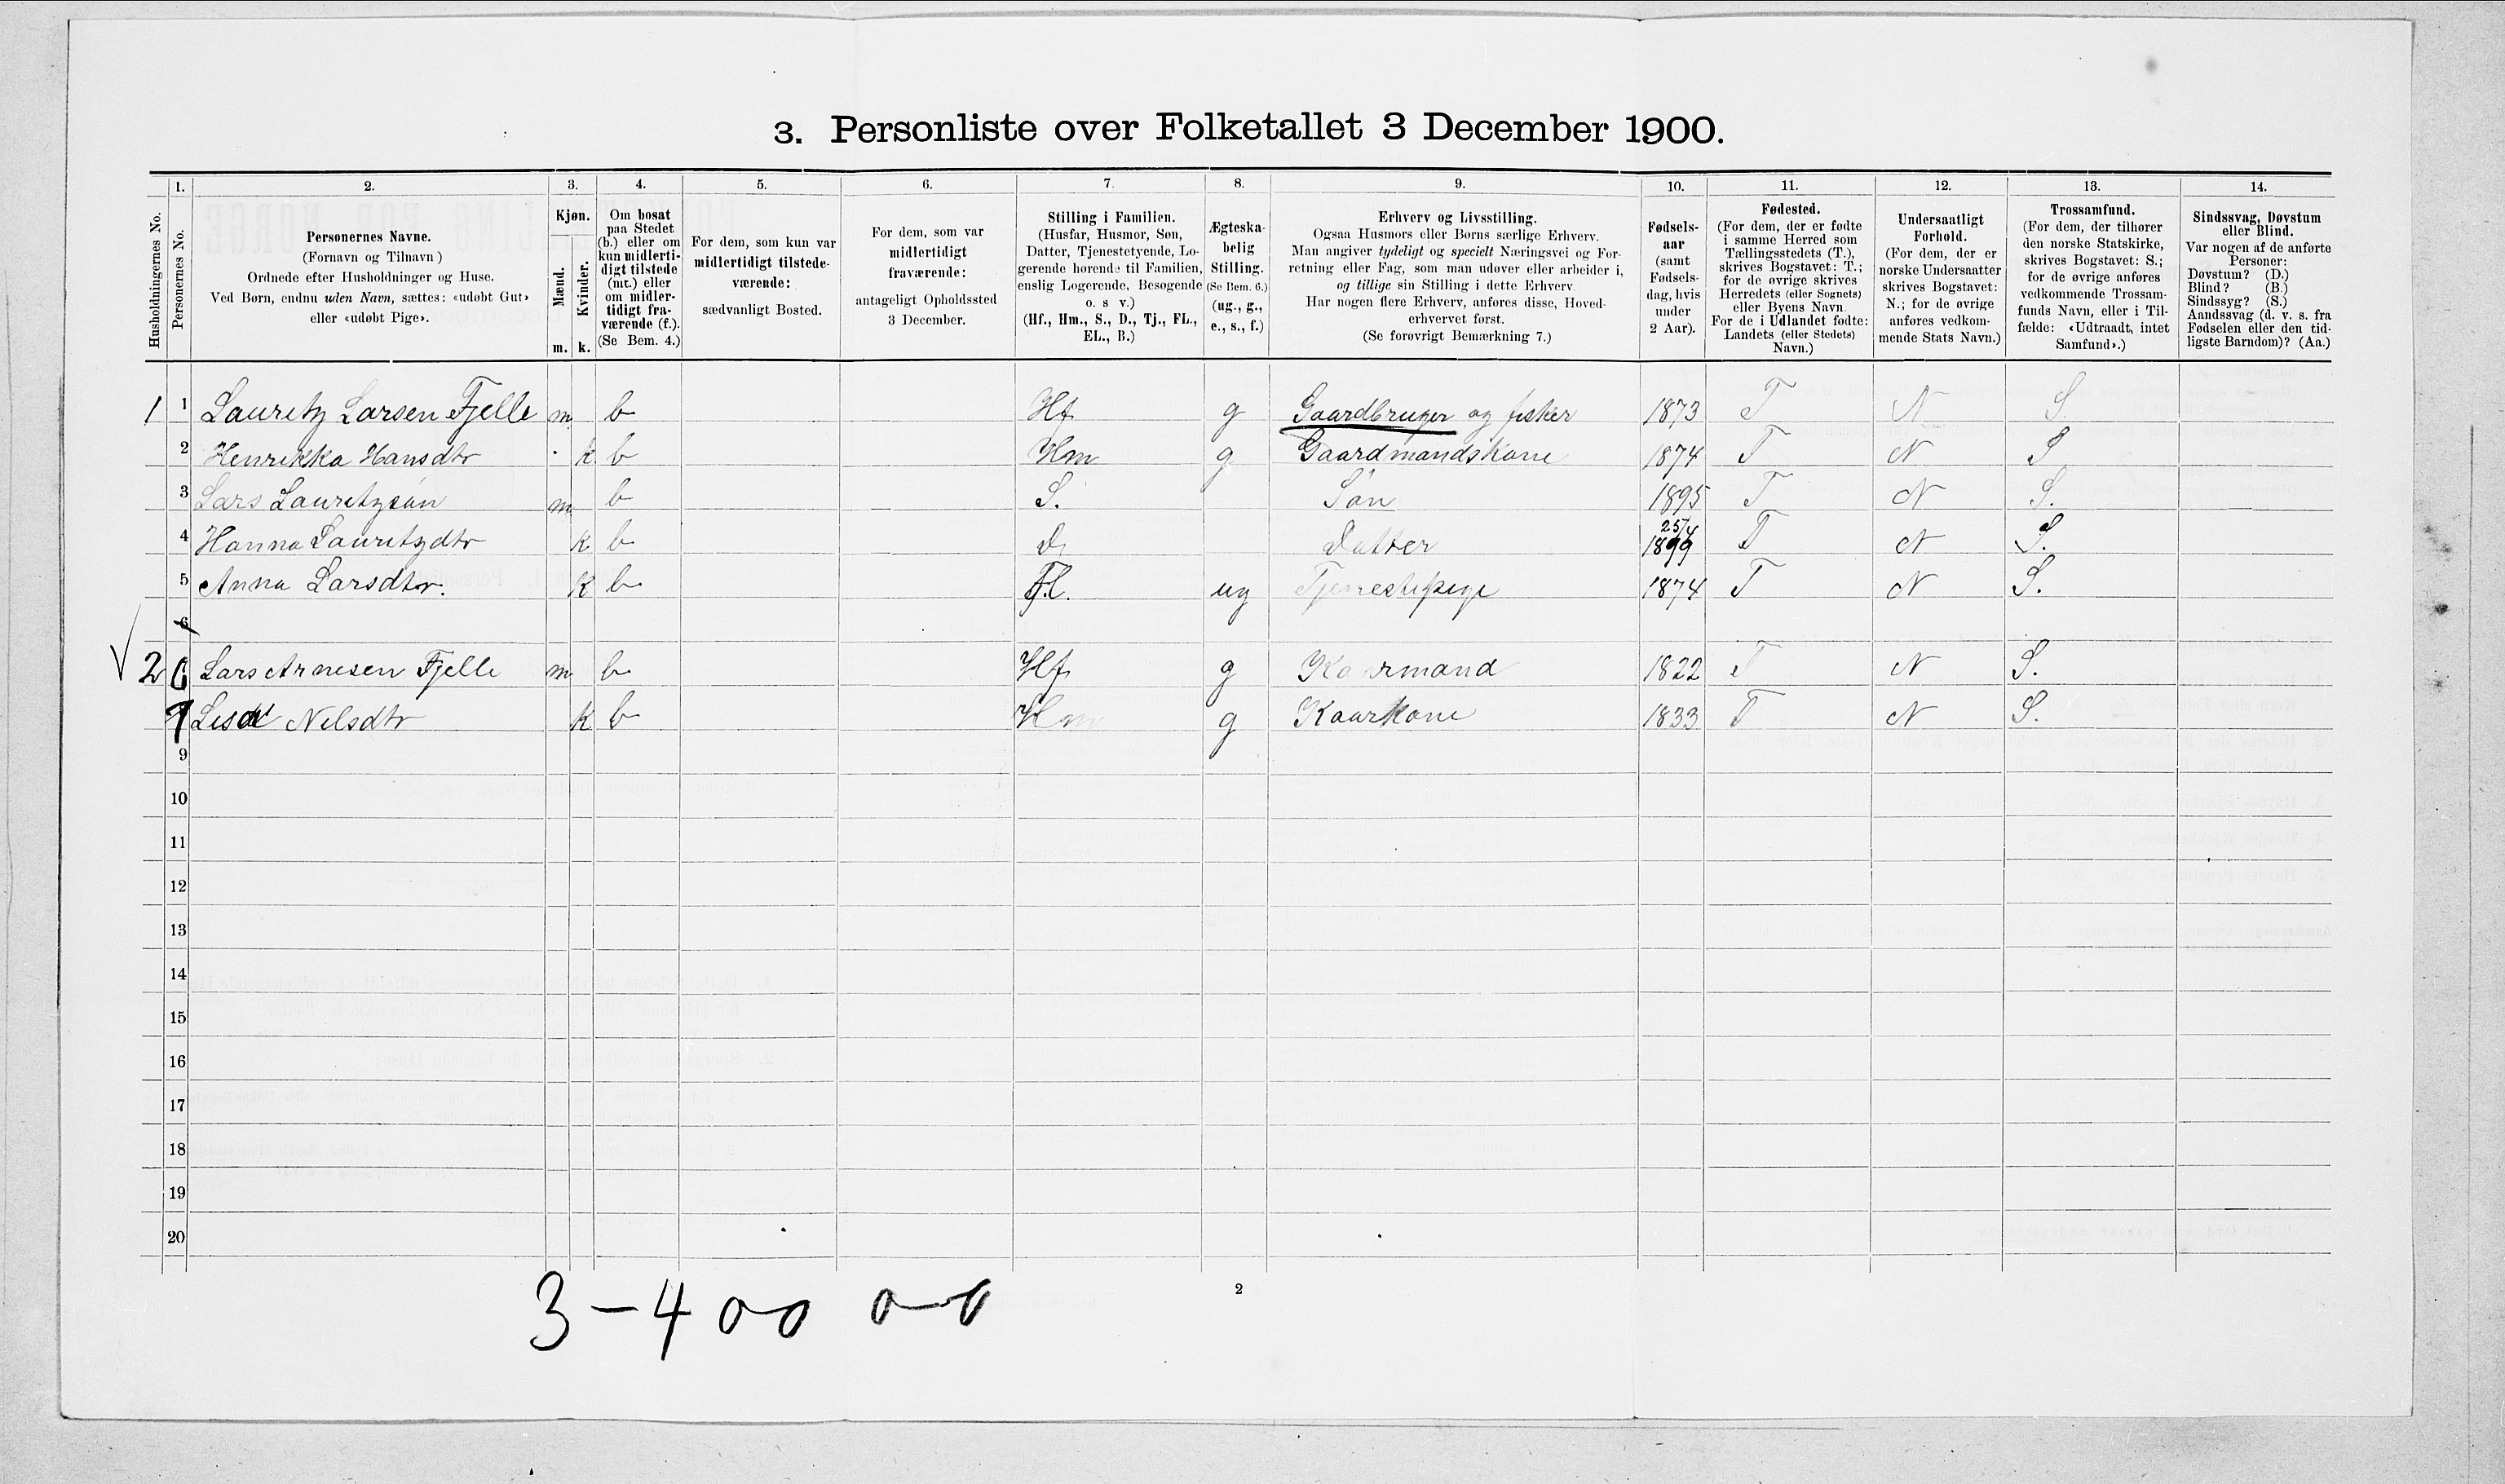 3. Personliste over Folketallet 3 December 1900.
1. 2. 3. 4. 5. 6. 7. 8. 9. 10. 11. 12. 13. 14.
Husholdningernes No.
Personernes No.
Personernes Navne.
(Fornavn og Tilnavn)
Ordnede efter Husholdninger og Huse.
Ved Børn, endnu uden Navn, sættes: «udøbt Gut»
eller «udøbt Pige».
Kjøn.
Mænd.
Kvinder.
m. k.
Om bosat
paa Stedet
(b.) eller om
kun midlerti-
digt tilstede
(mt.) eller
om midler-
tidigt fra-
værende (f.).
(Se Bem. 4.)
For dem, som kun var
midlertidigt tilstede-
værende:
sædvanligt Bosted.
For dem, som var
midlertidigt
fraværende:
antageligt Opholdssted
3 December.
Stilling i Familien.
(Husfar, Husmor, Søn,
Datter, Tjenestetyende, Lo-
gerende hørende til Familien,
enslig Logerende, Besøgende
o. s v.)
(Hf., Hm., S., D., Tj., FL.,
EL., B.)
Ægteska-
belig
Stilling.
(Se Bem. 6.)
(ug., g.,
e., s., f.)
Erhverv og Livsstilling.
Ogsaa Husmors eller Børns særlige Erhverv.
Man angiver tydeligt og specielt Næringsvei og For-
retning eller Fag, som man udøver eller arbeider i,
og tillige sin Stilling i dette Erhverv
Har nogen flere Erhverv, anføres disse, Hoved-
erhvervet først.
(Se forøvrigt Bemærkning 7.)
Fødsels-
aar
(samt
Fødsels-
dag, hvis
under
2 Aar).
Fødested.
(For dem, der er fødte
i samme Herred som
Tællingsstedets (T.),
skrives Bogstavet: T.;
for de øvrige skrives
Herredets (eller Sognets)
eller Byens Navn.
For de i Udlandet fødte:
Landets (eller Stedets)
Navn.)
Undersaatligt
Forhold.
(For dem, der er
norske Undersaatter
skrives Bogstavet:
N.; for de øvrige
anføres vedkom-
mende Stats Navn.)
Trossamfund.
(For dem, der tilhører
den norske Statskirke,
skrives Bogstavet: S.;
for de øvrige anføres
vedkommende Trossam-
funds Navn, eller i Til-
fælde: «Udtraadt, intet
Samfund».)
Sindssvag, Døvstum
eller Blind.
Var nogen af de anførte
Personer:
Døvstum? (D.)
Blind? (B.)
Sindssyg? (S.)
Aandssvag (d. v. s. fra
Fødselen eller den tid-
ligste Barndom)? (Aa.)
1 1 Lauritz Larsen Fjelle m b Hf g Gaardbruger og fisker 1873 T N S
2 Henrikka Hansdtr k b Hm g Gaardmandskone 1874 T N S
3 Lars Lauritzsøn m b S. Søn 1895 T N S.
4 Hanna Lauritzdtr k b D Datter 25/4 1899 T N S.
5 Anna Larsdtr. k b F.L. ug Tjenestepige 1874 T N S.
6
2 6 Lars Arnesen Fjelle m b Hf g Kaarmand 1822 T N S.
7 Nelsdtr k b Hm g Kaarkone 1833 T N S.
9
10
11
12
13
14
15
16
17
18
19
20
3 - 4 0-0 0-0
2